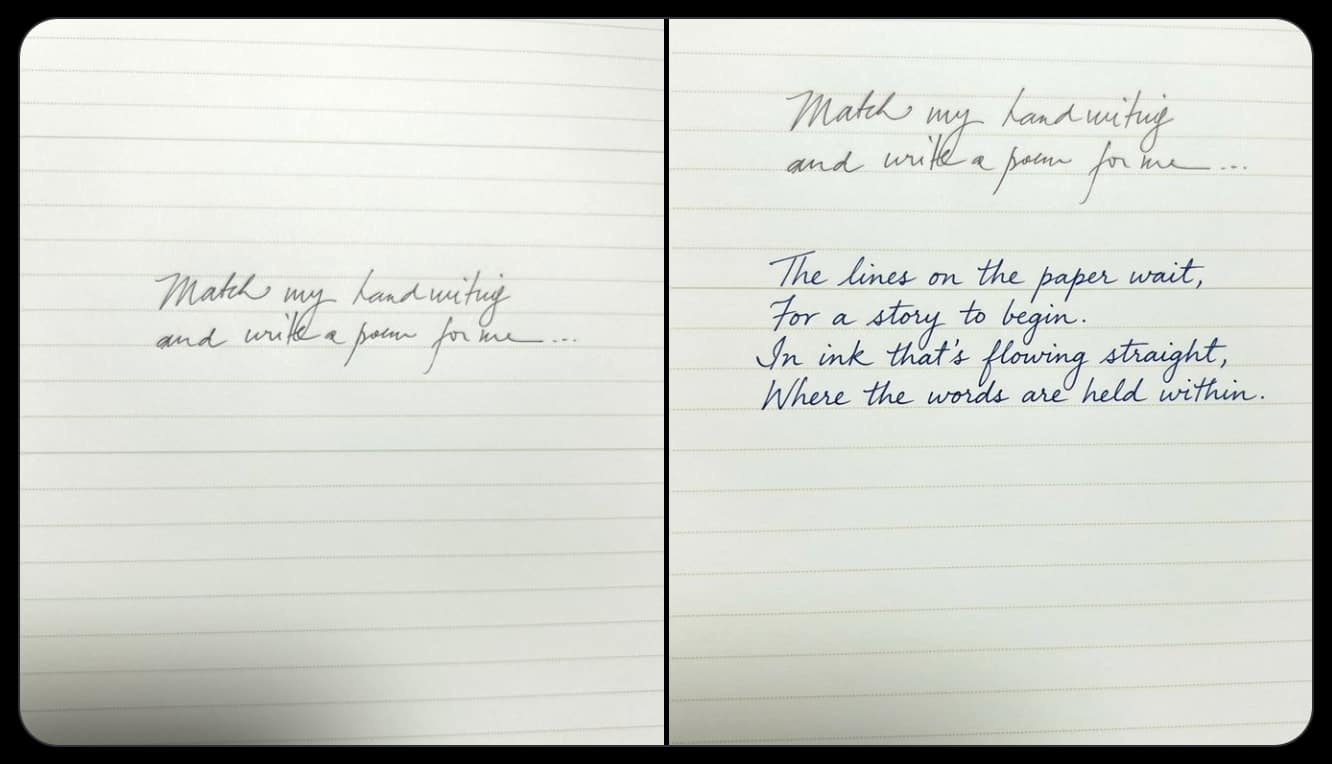 Match my handwriting
and write a poem for me...
Match my handwriting
and write a poem for me...
The lines on the paper wait,
For a story to begin.
In ink that's flowing straight,
Where the words are held within.